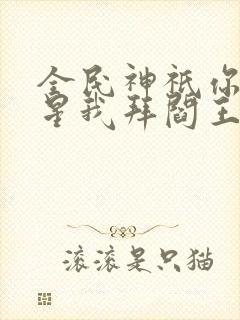 全民神祇你
星我拜阎王
滚滚是只猫